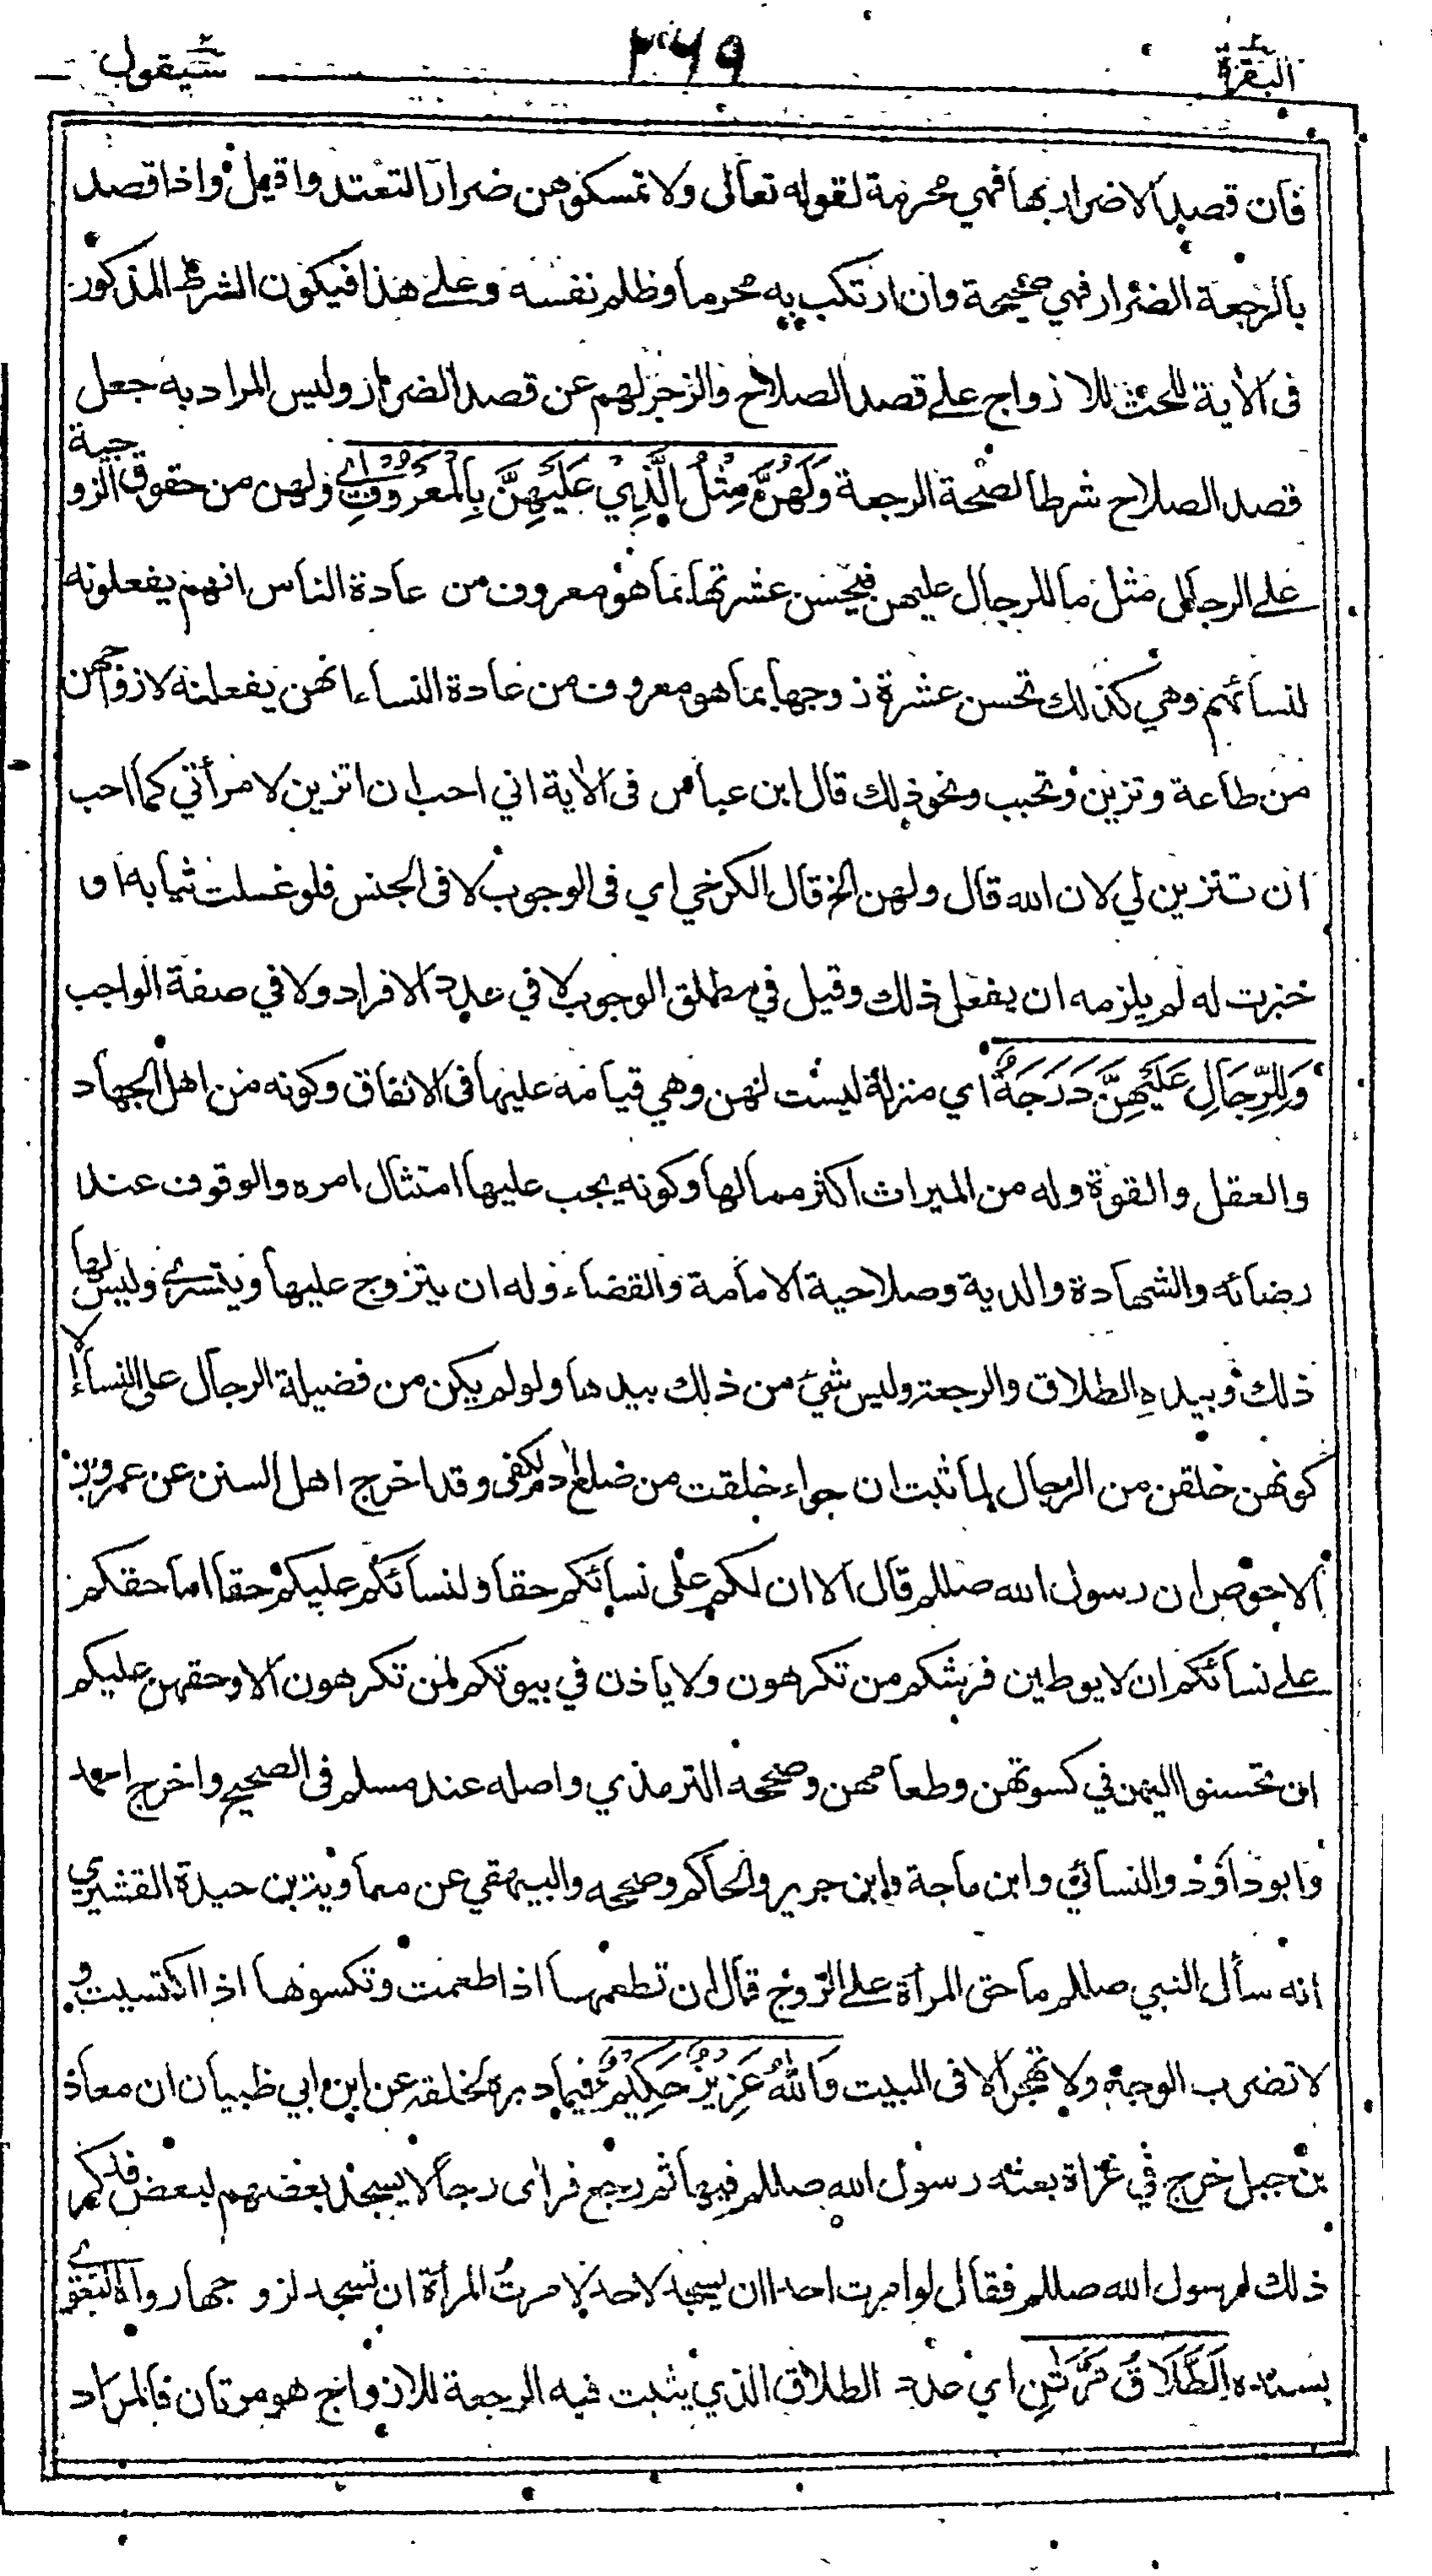 البقرة ٣٦٩ سيقول
فان قصد الاضرار بها فهي محرمة لقوله تعالى ولا تمسكوهن ضرارا لتعتدوا قيل واذا قصد
بالرجعة الضرار فهي صحيحة وان ارتكب به محرما وظلم نفسه وعلى هذا فيكون الشرط المذكور
فى الاية للحث للازواج على قصد الصلاح والزجر لهم عن قصد الضرار وليس المراد به جعل
قصد الصلاح شرطا لصحة الرجعة وَلَهُنَّ مِثْلُ الَّذِي عَلَيْهِنَّ بِالْمَعْرُوفِ اي ولهن من حقوق الزوجية
على الرجال مثل ما للرجال عليهن فيحسن عشرتها بما هو معروف من عادة الناس انهم يفعلونه
لنسائهم وهي كذلك تحسن عشرة زوجها بما هو معروف من عادة النساء انهن يفعلنه لازواجهن
من طاعة وتزين وتحبب ونحو ذلك قال ابن عباس فى الاية اني احب ان اتزين لامرأتي كما احب
ان تتزين لي لان الله قال ولهن الخ قال الكرخي اي فى الوجوب لا فى الجنس فلو غسلت ثيابه او
خبزت له لم يلزمه ان يفعل ذلك وقيل في مطلق الوجوب لا في عدد الافراد ولا في صفة الواجب
وَلِلرِّجَالِ عَلَيْهِنَّ دَرَجَةٌ اي منزلة ليست لهن وهي قيامه عليها فى الانفاق وكونه من اهل الجهاد
والعقل والقوة وله من الميراث اكثر مما لها وكونه يجب عليها امتثال امره والوقوف عند
رضائه والشهادة والدية وصلاحية الامامة والقضاء وله ان يتزوج عليها ويتسرى وليس لها
ذلك وبيده الطلاق والرجعة وليس شيء من ذلك بيدها ولو لم يكن من فضيلة الرجال على النساء الا
كونهن خلقن من الرجال لما ثبت ان حواء خلقت من ضلع ادم لكفى وقد اخرج اهل السنن عن عمرو بن
الاحوص ان رسول الله صللم قال الا ان لكم على نسائكم حقا ولنسائكم عليكم حقا اما حقكم
على نسائكم ان لا يوطين فرشكم من تكرهون ولا ياذن في بيوتكم لمن تكرهون الا وحقهن عليكم
ان تحسنوا اليهن في كسوتهن وطعامهن وصححه الترمذي واصله عند مسلم فى الصحيح واخرج احمد
وابو داؤد والنسائي وابن ماجة وابن جرير والحاكم وصححه والبيهقي عن معاوية بن حيدة القشيري
انه سأل النبي صللم ما حق المرأة على الزوج قال ان تطعمها اذا طعمت وتكسوها اذا اكتسيت و
لا تضرب الوجه ولا تهجر الا فى البيت وَاللّٰهُ عَزِيزٌ حَكِيمٌ فيما دبره لخلقه عن ابن ابي ظبيان ان معاذ
بن جبل خرج في غزاة بعثه رسول الله صللم فيها ثم رجع فراى رجالا يسجد بعضهم لبعض فذكر
ذلك لرسول الله صللم فقال لو امرت احدا ان يسجد لاحد لامرت المرأة ان تسجد لزوجها رواه البغوي
بسنده اَلطَّلَاقُ مَرَّتٰنِ اي عدد الطلاق الذي يثبت فيه الرجعة للازواج هو مرتان فالمراد